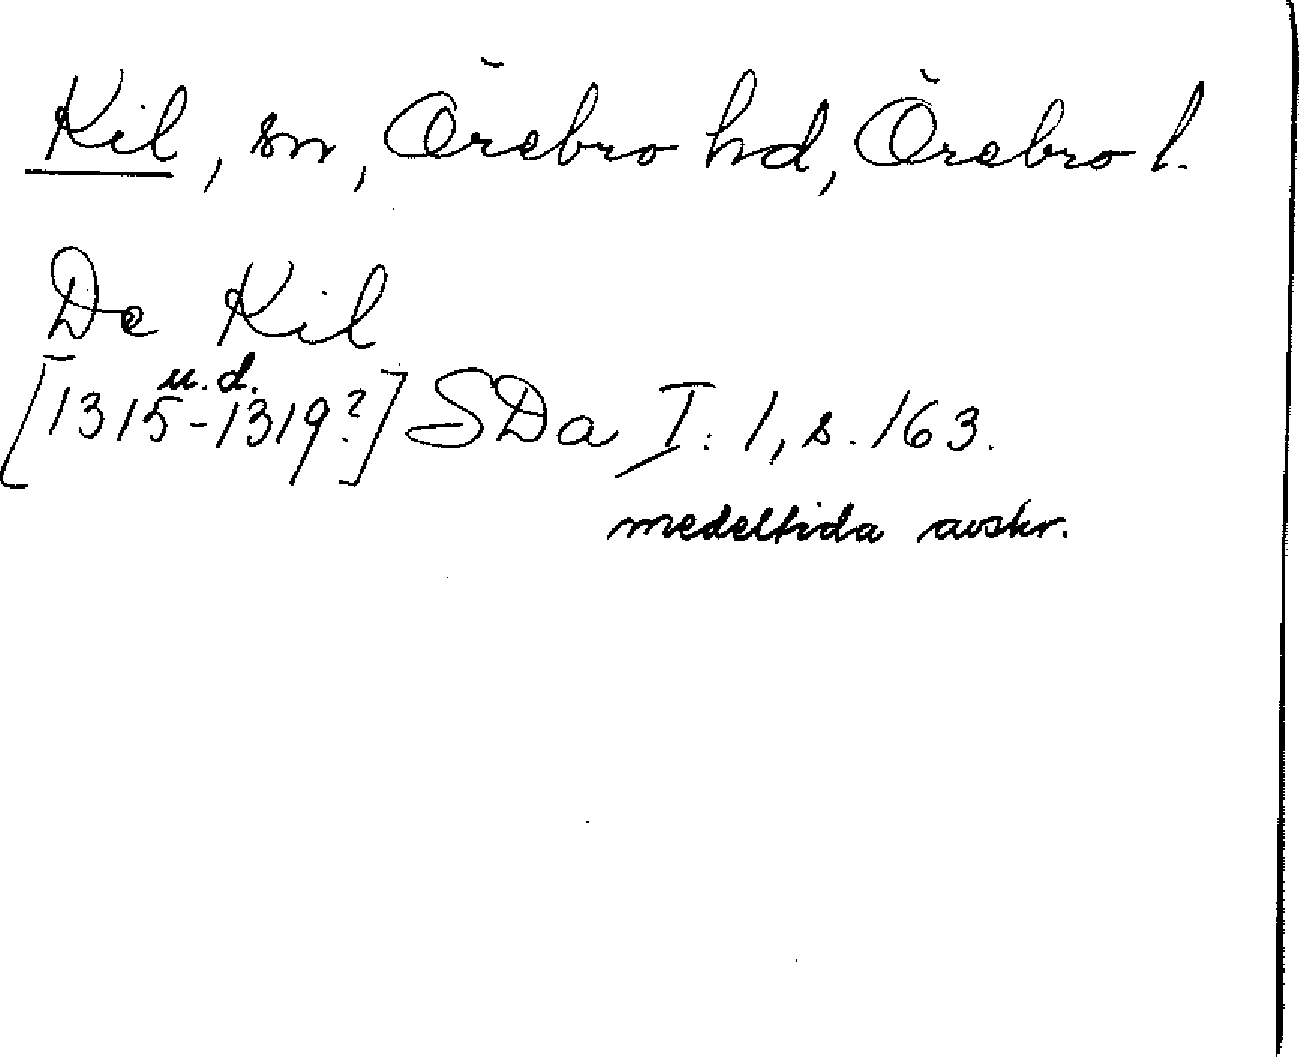 Kil, sn, Örebro hd, Örebro l.
De Kil
u.d.
[1315-1319?] SDa I:1, s. 163.
medeltida avskr.